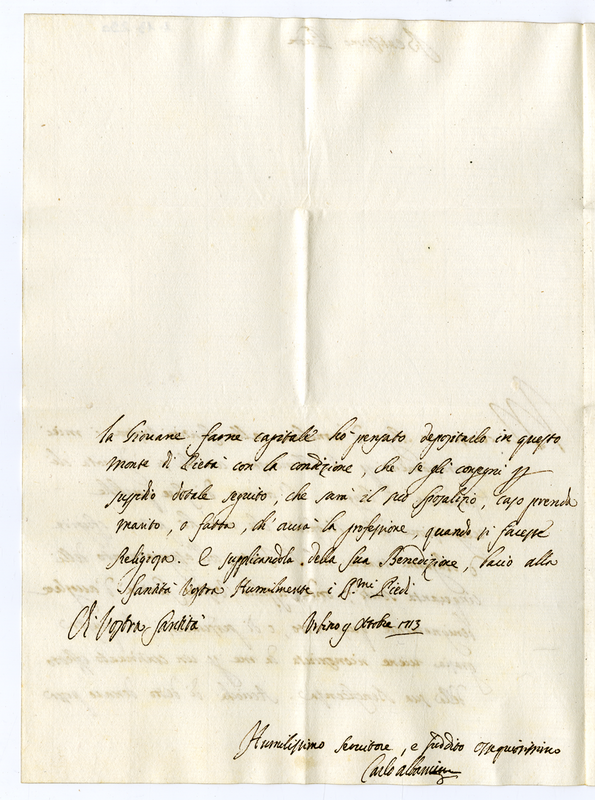 la Giovane farne capitale ho pensato depositarlo in questo
monte di Pietà con la condizione, che se gli consegni p
sussidio dotale seguito, che sara il suo sposalizio, caso prenda
marito, o fatta, ch' aurà la professione, quando si facesse
Religiosa. E supplicandola della sua Benedizione, bacio alla
Santità Vostra Humilmente i S.mi Piedi
Di Vostra Santità Urbino 9 Ottobre 1713
Humilissimo servitore, e suddito
Carlo Albani